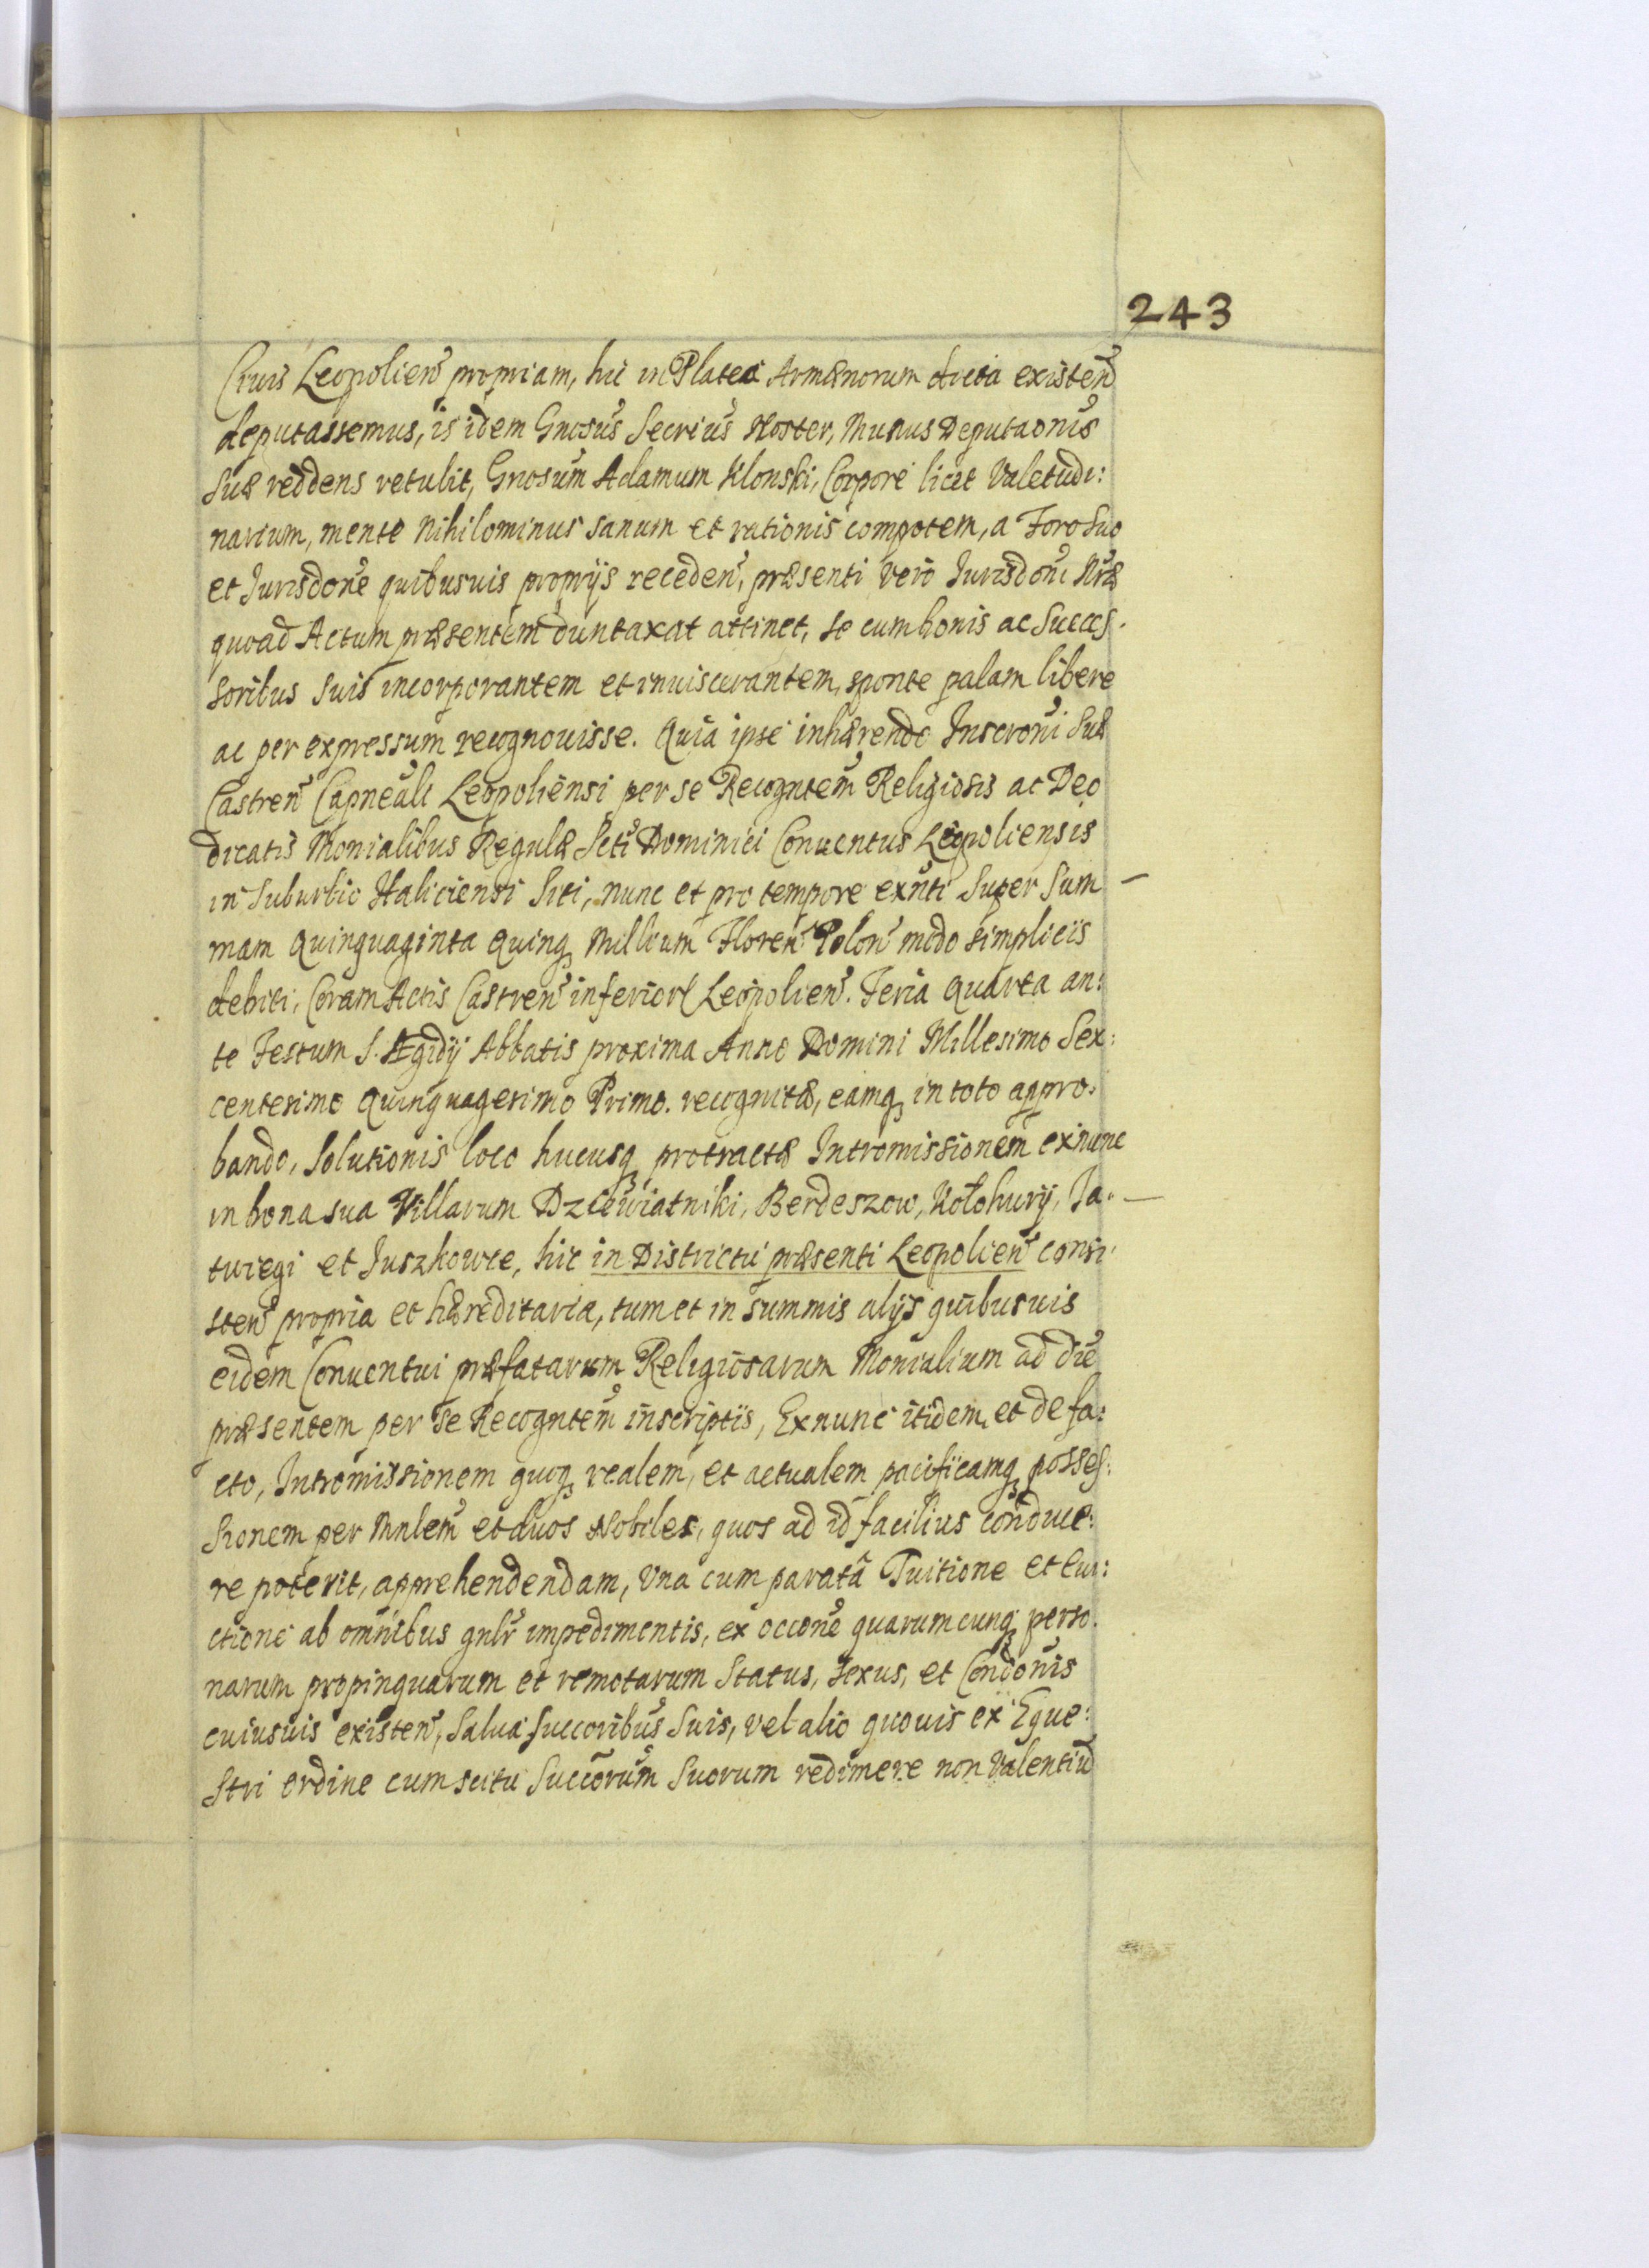 243
Ciuis Leopolien̄ propriam, hic in Platea Armænorum dicta existen̄
deputassemus, is idem Gnosus Secrius Noster, Munus Deputaonis
suæ reddens retulit, Gnosum Adamum Klonski, Corpore licet Valetudi:
narium, mente nihilominus sanum et rationis compotem, a Foro suo
et Jurisdone quibusuis propriis receden̄, præsenti vero Jurisdoni Nræ
quoad Actum præsentem duntaxat attinet, se cum bonis ac succes.
soribus suis incorporantem et inuiscerantem, sponte palam libere
ac per expressum recognouisse. Quia ipse inhærendo Inscroni suæ
Castren̄ Capneali Leopoliensi per se Recogntem Religiosis ac Deo
dicatis Monialibus Regulæ Scti Dominici Conuentus Leopoliensis
in Suburbio Haliciensi siti, nunc et pro tempore exnti super Sum
mam Quinquaginta Quinq̨ Millium Floren̄ Polon̄ modo simplicis
debiti, Coram Actis Castren̄ inferiori Leopolien̄. Feria Quarta an:
te Festum S. Ægidij Abbatis proxima Anno Domini Millesimo Sex:
centesimo Quinquagesimo Primo. recognitæ, eamq̨ in toto appro.
bando, Solutionis loco hucusq̨ protractæ Intromissionem exnunc
in bona sua Villarum Dzcewiatniki, Berdeszow, Kołohury, Ja.
twiegi et Juszkowce, hic in Districtu præsenti Leopolien̄ consi.
sten̄ propria et hæreditaria, tum et in summis alijs quibusuis
eidem Conuentui præfatarum Religiosarum Monialium ad die
præsentem per se Recogntem inscriptis, Exnunc itidem, et de fa:
cto, Intromissionem quoq̨ realem, et actualem pacificamq̨ posses:
sionem per Mnlem et duos Nobiles, quos ad id facilius conduce:
re poterit, apprehendendam, Vna cum parata Tuitione et Eui:
ctione ab omnibus gnlr impedimentis, ex occone quarumcunq̨ perso.
narum propinquarum et remotarum Status, sexus, et Condonis
cuiusuis existen̄, Salua succoribus suis, vel alio quouis ex Eque:
stri ordine cum scitu Succorum Suorum redimere non Valentiu